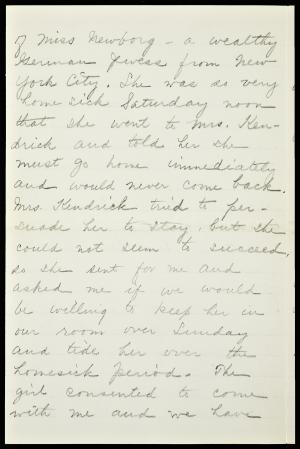 of Miss Newborg - a wealthy
German Jewess from New
York City. She was so very
homesick Saturday noon
that she went to Mrs. Ken-
drick and told her she
must go home immediately
and would never come back.
Mrs. Kendrick tried to per-
suade her to stay, but she
could not seem to succeed,
so she sent for me and
asked me if we would
be willing to keep her in
our room over Sunday
and tide her over the
homesick period. The
girl consented to come
with me and we have